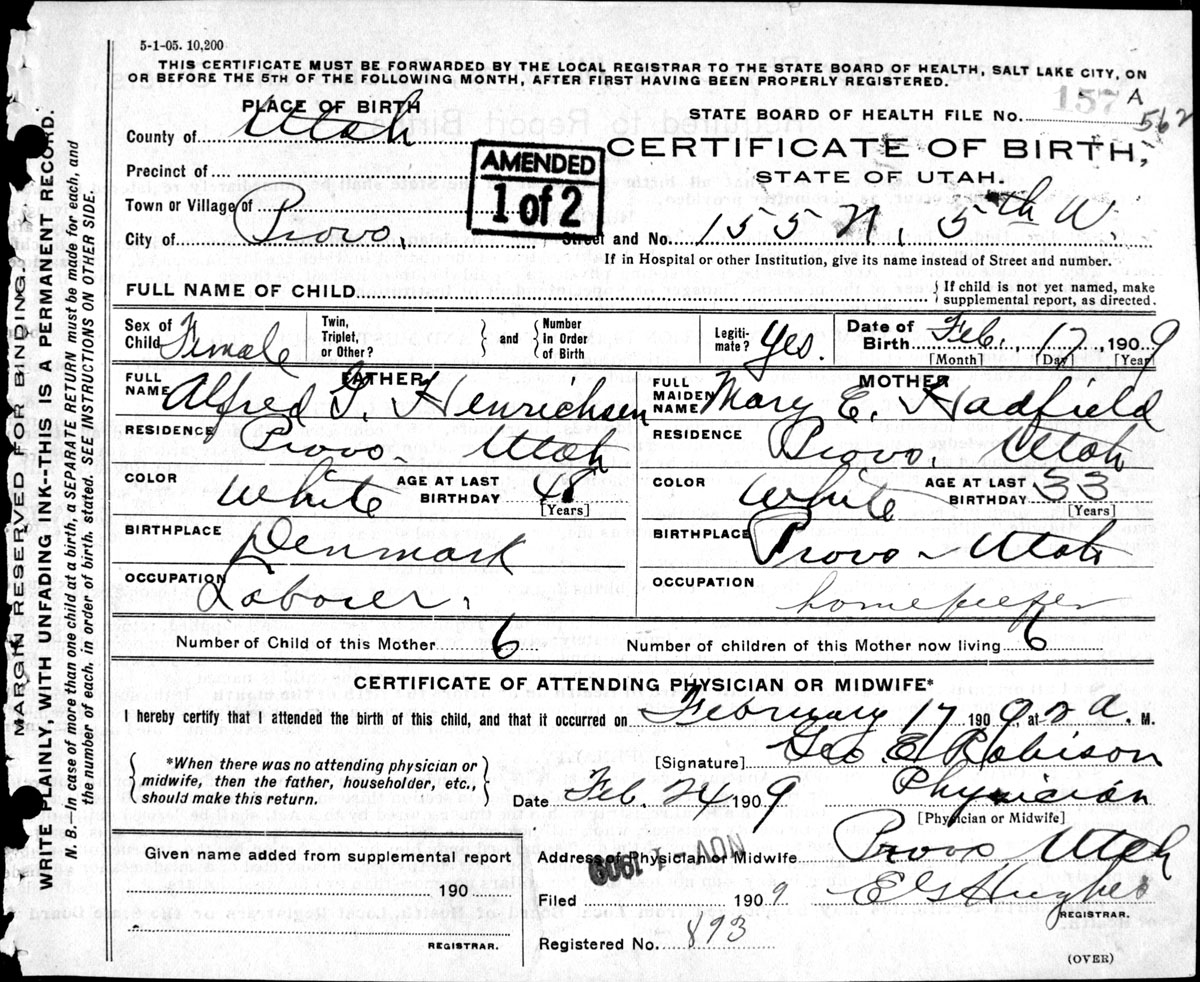 5-1-05. 10,200
THIS CERTIFICATE MUST BE FORWARDED BY THE LOCAL REGISTRAR TO THE STATE BOARD OF HEALTH, SALT LAKE CITY, ON
OR BEFORE THE 5TH OF THE FOLLOWING MONTH, AFTER FIRST HAVING BEEN PROPERLY REGISTERED.
MARGIN RESERVED FOR BINDING.
WRITE PLAINLY, WITH UNFADING INK--THIS IS A PERMANENT RECORD.
N. B. In case of more than one child at a birth, a SEPARATE RETURN must be made for each, and
the number of each, in order of birth, stated. SEE INSTRUCTIONS ON OTHER SIDE.
PLACE OF BIRTH
County of Utah
Precinct of
Town or Village of
City of Provo.
AMENDED
1 of 2
157 A
STATE BOARD OF HEALTH FILE No. 562
CERTIFICATE OF BIRTH,
STATE OF UTAH.
Street and No. 155 N, 5th W.
If in Hospital or other Institution, give its name instead of Street and number.
FULL NAME OF CHILD
If child is not yet named, make
supplemental report, as directed.
Sex of Child Female
Twin, Triplet, or Other?
and
Number in Order of Birth
Legiti-mate? Yes.
Date of Birth Feb. 17, 1909
[Month] [Day] [Year]
FATHER
FULL NAME Alfred G. Henrichsen
RESIDENCE Provo- Utah
COLOR White AGE AT LAST BIRTHDAY 48
[Years]
BIRTHPLACE Denmark
OCCUPATION Laborer.
MOTHER
FULL MAIDEN NAME Mary E. Hadfield
RESIDENCE Provo. Utah
COLOR White AGE AT LAST BIRTHDAY 33
[Years]
BIRTHPLACE Provo - Utah
OCCUPATION homekeeper
Number of Child of this Mother 6
Number of children of this Mother now living 6
CERTIFICATE OF ATTENDING PHYSICIAN OR MIDWIFE*
I hereby certify that I attended the birth of this child, and that it occurred on February 17 1909, at 2 a. M.
*When there was no attending physician or
midwife, then the father, householder, etc.,
should make this return.
[Signature] Geo. E. Robison
Date Feb. 24 1909
Physician
[Physician or Midwife]
Given name added from supplemental report
190
REGISTRAR.
Address of Physician or Midwife Provo Utah
NOV 1 1909
Filed 1909 E G Hughes
REGISTRAR.
Registered No. 893
(OVER)